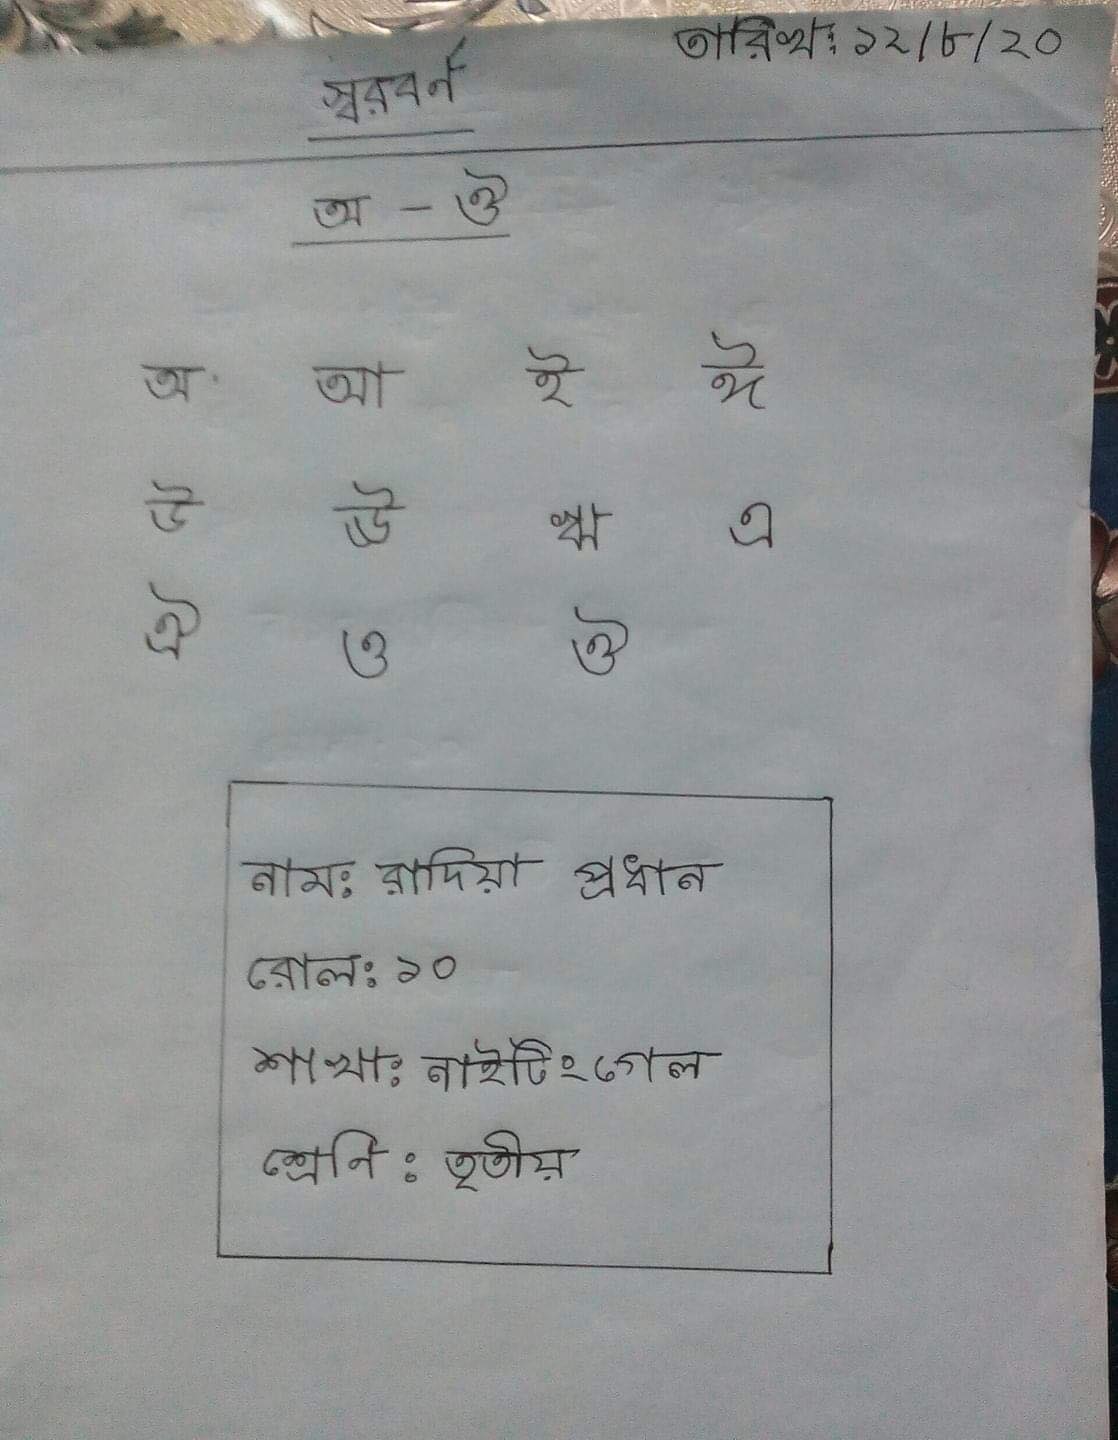 তারিখঃ ১২/৮/২০
স্বরবর্ন
অ - ঔ
অ আ ই ঈ
উ ঊ ঋ এ
ঐ ও ঔ
নামঃ রাদিয়া প্রধান
রোলঃ ১০
শাখাঃ নাইটিংগেল
শ্রেনি : তৃতীয়